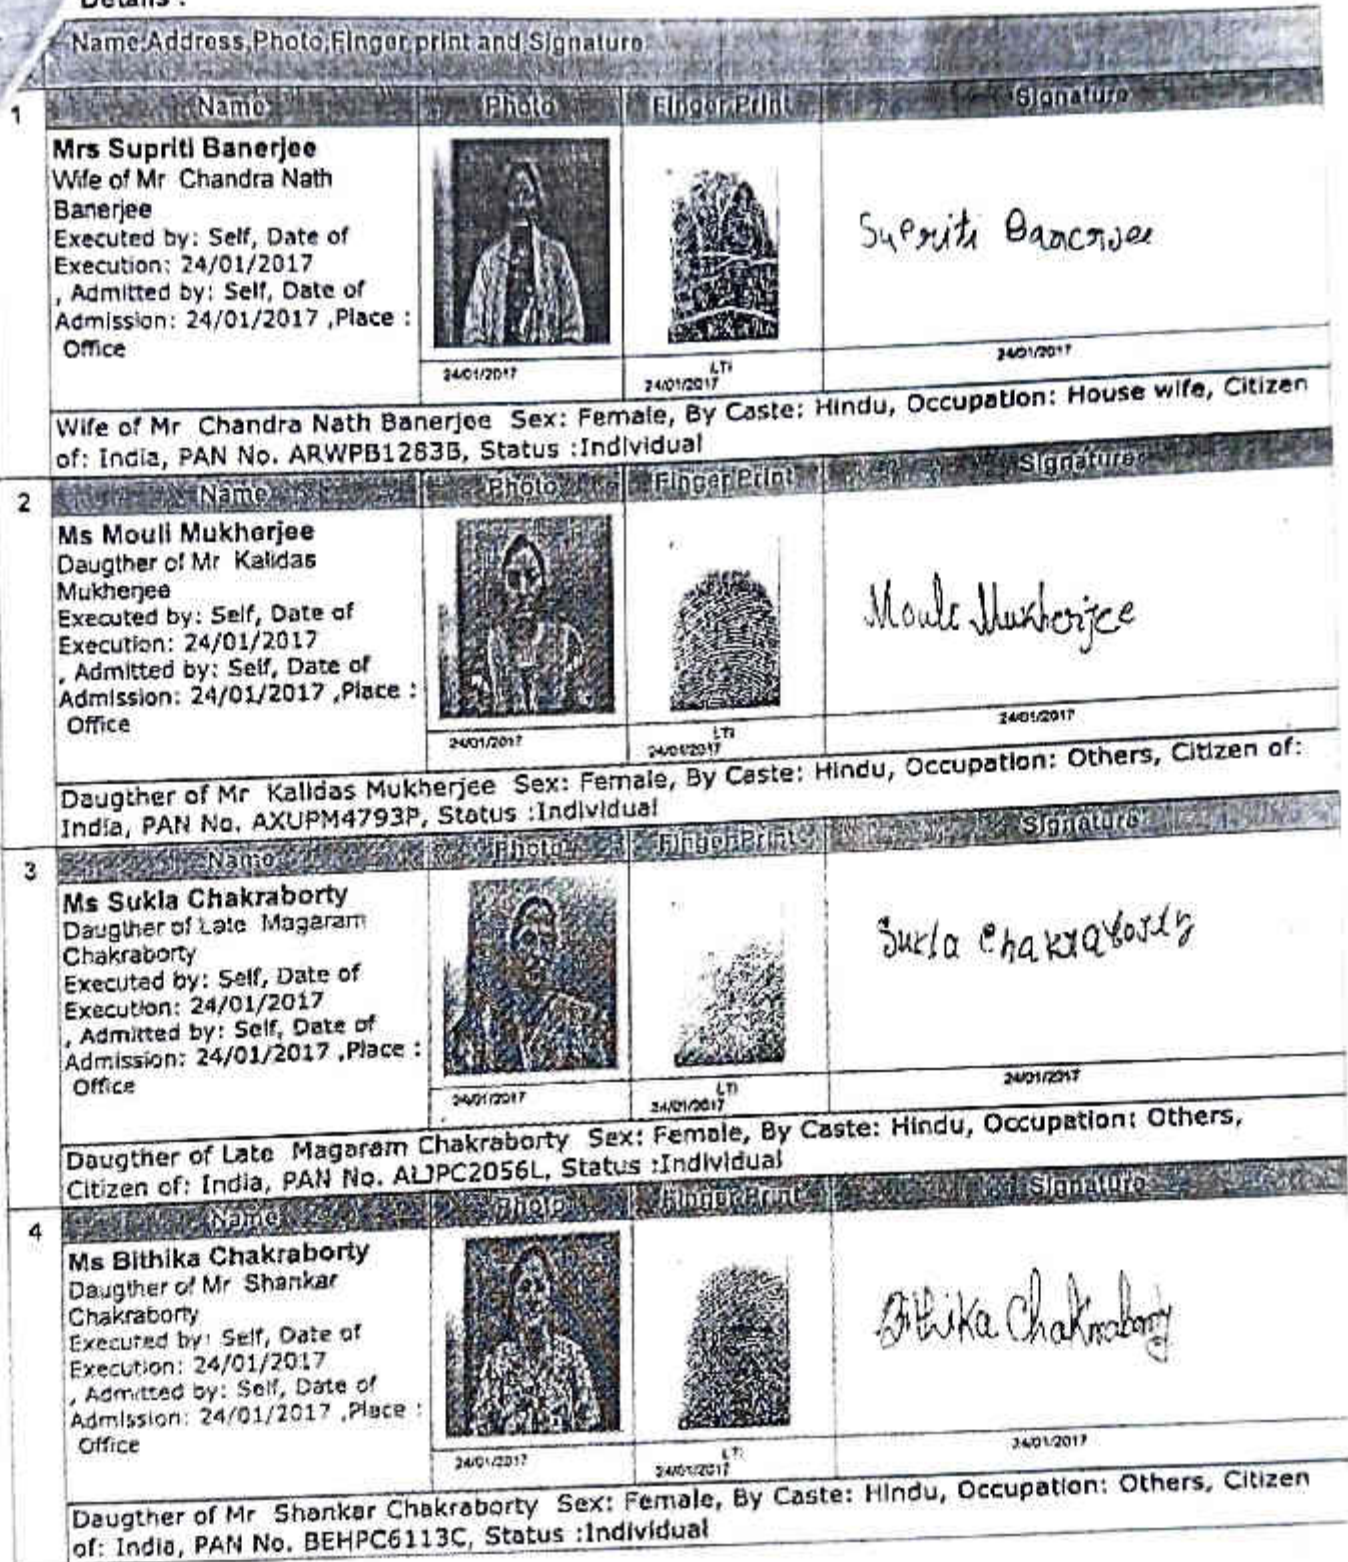 Details :
Name,Address,Photo,Finger print and Signature
1
Name Photo Finger Print Signature
Mrs Supriti Banerjee
Wife of Mr Chandra Nath
Banerjee
Executed by: Self, Date of
Execution: 24/01/2017
, Admitted by: Self, Date of
Admission: 24/01/2017 ,Place :
Office
Supriti Banerjee
24/01/2017
LTI
24/01/2017
24/01/2017
Wife of Mr Chandra Nath Banerjee Sex: Female, By Caste: Hindu, Occupation: House wife, Citizen
of: India, PAN No. ARWPB1283B, Status :Individual
2
Name Photo Finger Print Signature
Ms Mouli Mukherjee
Daugther of Mr Kalidas
Mukherjee
Executed by: Self, Date of
Execution: 24/01/2017
, Admitted by: Self, Date of
Admission: 24/01/2017 ,Place :
Office
Mouli Mukherjee
24/01/2017
LTI
24/01/2017
24/01/2017
Daugther of Mr Kalidas Mukherjee Sex: Female, By Caste: Hindu, Occupation: Others, Citizen of:
India, PAN No. AXUPM4793P, Status :Individual
3
Name Photo Finger Print Signature
Ms Sukla Chakraborty
Daugther of Late Magaram
Chakraborty
Executed by: Self, Date of
Execution: 24/01/2017
, Admitted by: Self, Date of
Admission: 24/01/2017 ,Place :
Office
Sukla Chakraborty
24/01/2017
LTI
24/01/2017
24/01/2017
Daugther of Late Magaram Chakraborty Sex: Female, By Caste: Hindu, Occupation: Others,
Citizen of: India, PAN No. Status :Individual
4
Name Photo Finger Print Signature
Ms Bithika Chakraborty
Daugther of Mr Shankar
Chakraborty
Executed by: Self, Date of
Execution: 24/01/2017
, Admitted by: Self, Date of
Admission: 24/01/2017 ,Place :
Office
Bithika Chakraborty
24/01/2017
LTI
24/01/2017
24/01/2017
Daugther of Mr Shankar Chakraborty Sex: Female, By Caste: Hindu, Occupation: Others, Citizen
of: India, PAN No. BEHPC6113C, Status :Individual